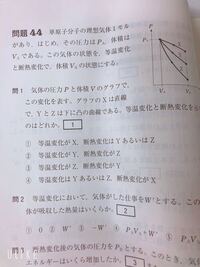 問題 44 単原子分子の理想気体1モル
があり，はじめ，その圧力はP₀，体積は
V₀である。この気体の状態を，等温変化
と断熱変化で，体積V₁の状態にする。
問1 気体の圧力Pと体積Vのグラフで，
この変化を表す。グラフのXは直線
で，YとZは下に凸の曲線である。等温変化と断熱変
のはどれか。 1
① 等温変化がX，断熱変化はYあるいはZ
② 等温変化がY，断熱変化がZ
③ 等温変化がZ，断熱変化がY
④ 等温変化はYあるいはZ，断熱変化がX
問2 等温変化において，気体がした仕事をW'とする。この
体が吸収した熱量はいくらか。 2
① 0 ② W' ③ -W' ④ ⑤ P₁V₁
問3 断熱変化後の気体の圧力をP₂とする。このとき，気
エネルギーはいくら増加したか。 3
LINE